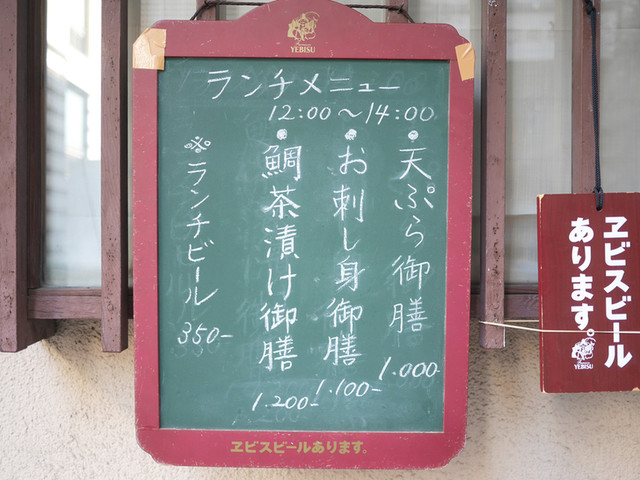 YEBISU
ランチメニュー
12:00～14:00
●天ぷら御膳
1.000-
●お刺し身御膳
1.100-
●鯛茶漬け御膳
1.200-
※ランチビール
350-
ヱビスビールあります。
ヱビスビール
あります。
YEBISU